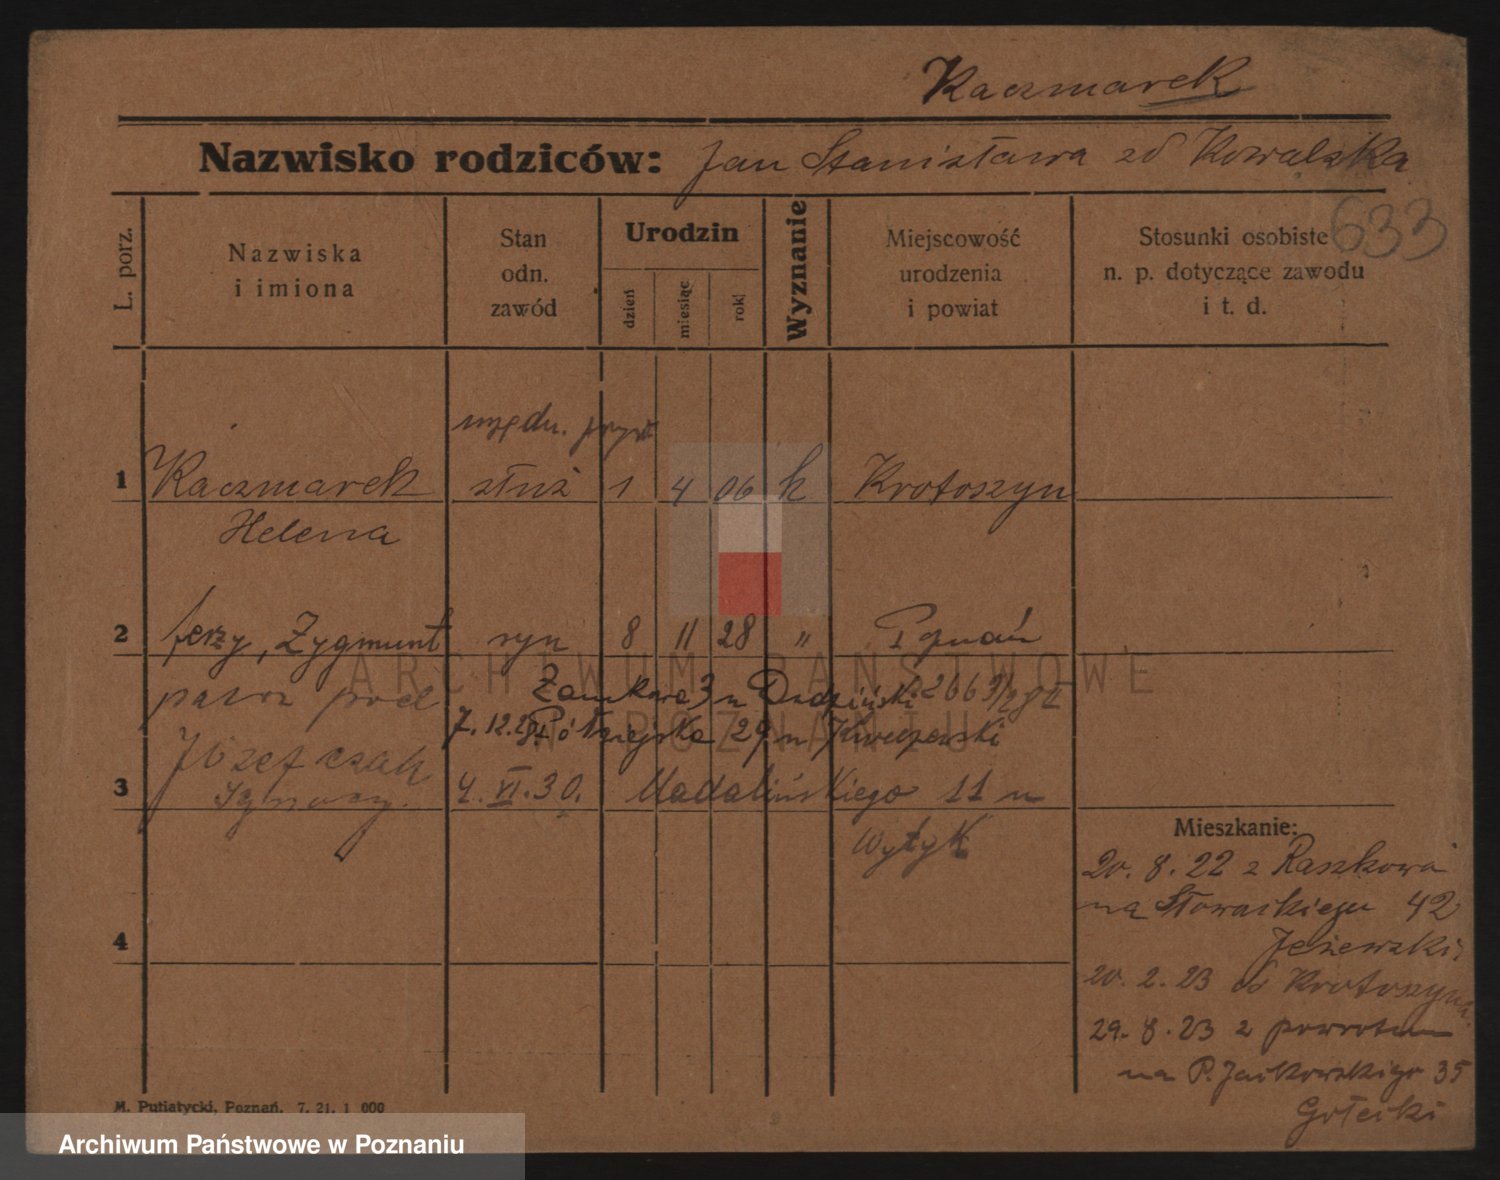 Kaczmarek
Nazwisko rodziców: Jan Stanisława zd Kowalska
633
L. porz.
Nazwiska
i imiona
Stan
odn.
zawód
Urodzin
dzień
miesiąc
rok
Wyznanie
Miejscowość
urodzenia
i powiat
Stosunki osobiste
n. p. dotyczące zawodu
i t. d.
urzędn. pryw
1 Kaczmarek służ 1 4 06 k Krotoszyn
Helena
2 Jerzy, Zygmunt syn 8 11 28 " Poznań
patrz pod Zamkowa 3 u
7.12.29. Półwiejska 29 u
Józefczak
3 Ignacy. 4. VI. 30. Madalińskiego 11 u
Wytyk
Mieszkanie:
20. 8. 22 z Raszkowa
na Słowackiego 42
Jeżewski
4
20. 2. 23 do Krotoszyna
29. 8. 23 z powrotem
na P. Jackowskiego 35
M. Putiatycki, Poznań. 7. 21. 1 000
ARCHIWUM PAŃSTWOWE
W POZNANIU
Archiwum Państwowe w Poznaniu